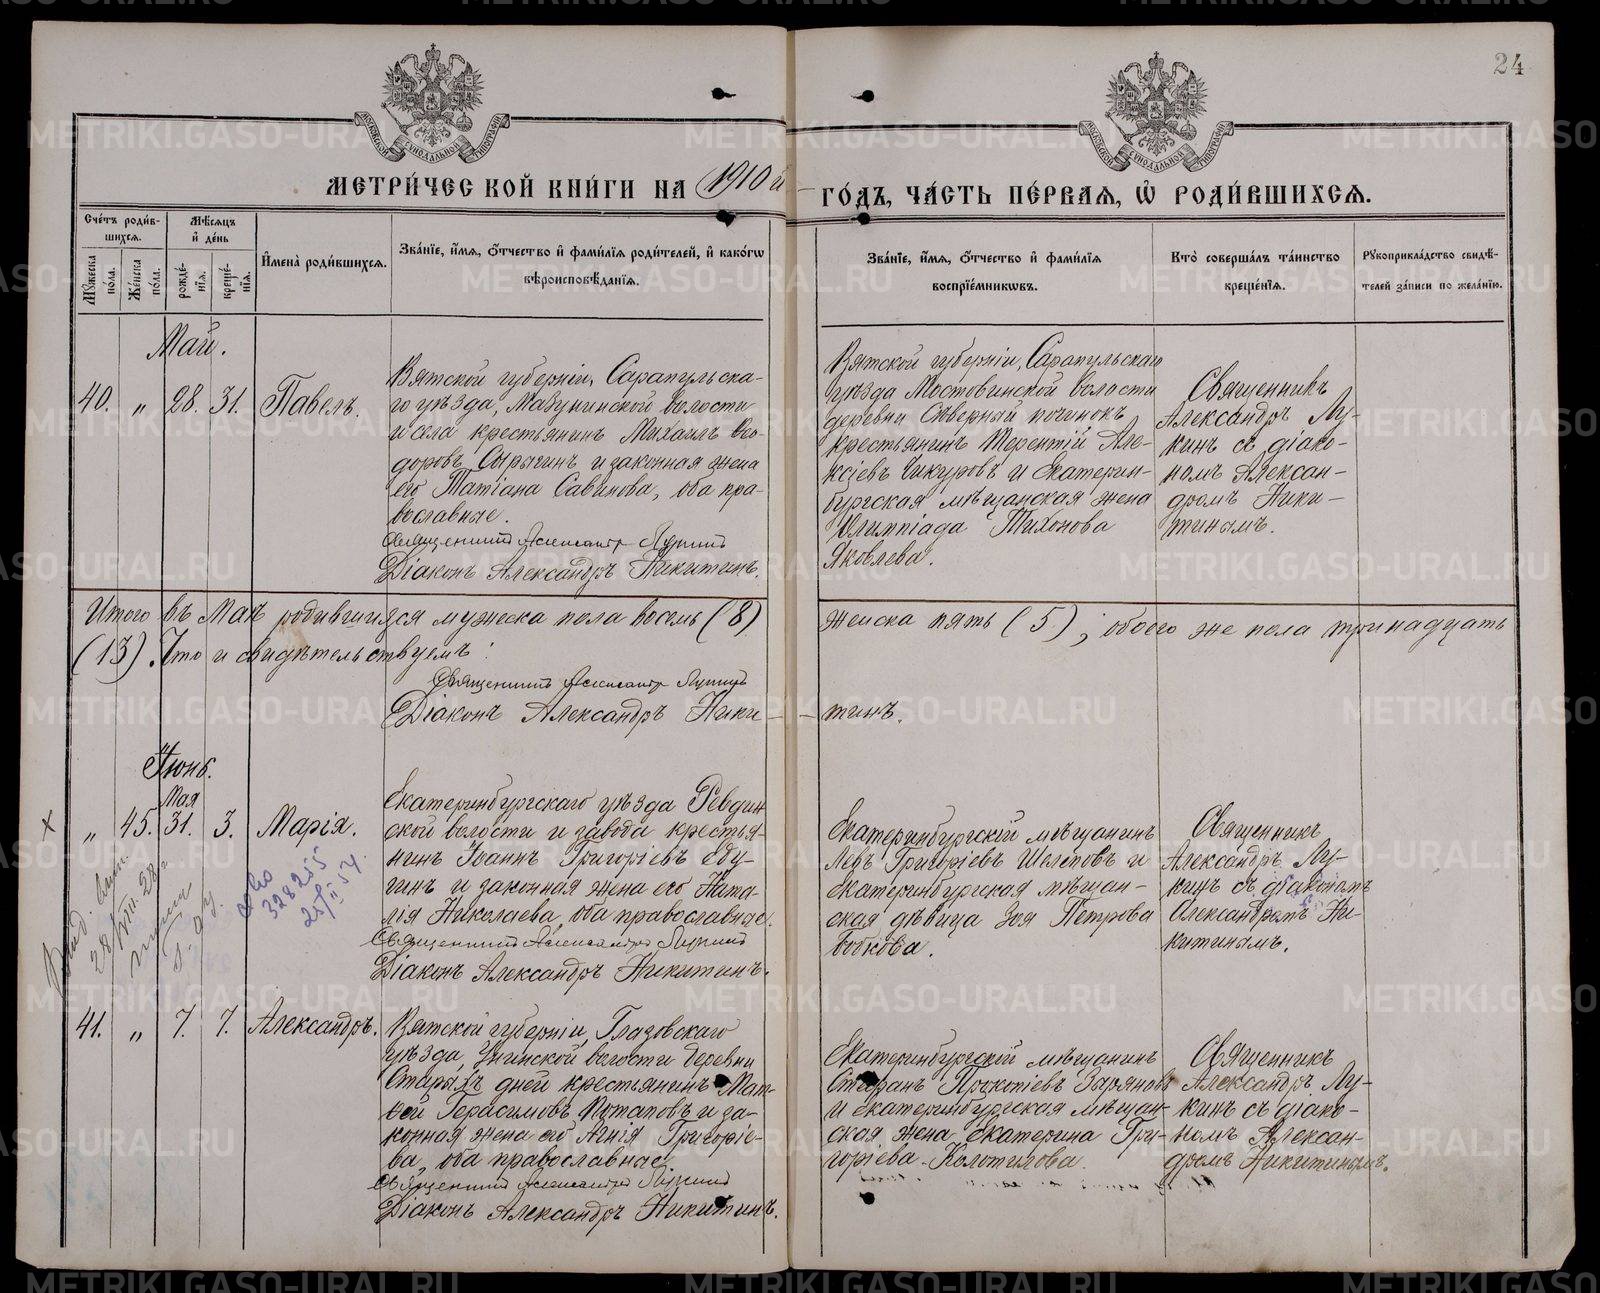 24
МЕТРИ́ЧЕСКОЙ КНИ́ГИ НА 1910й ГО́ДЪ, ЧА́СТЬ ПЕ́РВАЯ, Ѡ РОДИ́ВШИХСЯ.
Сче́тъ роди́вшихся.
Му́жеска по́ла.
Же́нска по́ла.
Мѣ́сяцъ и де́нь
рожде́нія.
креще́нія.
Имена̀ роди́вшихся.
Зва́ніе, и́мя, о́тчество и фами́лія роди́телей, и како́гѡ
вѣроисповѣ́данія.
Зва́ніе, и́мя, о́тчество и фами́лія
воспріе́мникѡвъ.
Кто̀ соверша́лъ та́инство
креще́нія.
Рукоприкла́дство свидѣ́-
телей за́писи по жела́нію.
Май.
40. „ 28. 31. Павелъ.
Вятской губерніи, Сарапульска-
го уѣзда, Мазунинской волости
и села крестьянинъ Михаилъ Ѳео-
доровъ Сырыгинъ и законная жена
его Татіана Савинова, оба пра-
вославные.
Священникъ Александръ Лукинъ
Діаконъ Александръ Никитинъ.
Вятской губерніи, Сарапульскаго
уѣзда Мостовинской волости
деревни Сѣверный починокъ
крестьянинъ Терентій Але-
ксіевъ Чикуровъ и Екатерин-
бургская мѣщанская жена
Олимпіада Тихонова
Яковлева.
Священникъ
Александръ Лу-
кинъ съ діако-
номъ Алексан-
дромъ Ники-
тинымъ.
Итого въ Маѣ родившихся мужеска пола восемь (8) женска пять (5), обоего же пола тринадцать
(13). Что и свидѣтельствуемъ:
Священникъ Александръ Лукинъ
Діаконъ Александръ Ники-
-тинъ.
Іюнь.
Мая
„ 45. 31. 3. Марія.
Екатеринбургскаго уѣзда Ревдин-
ской волости и завода крестья-
нинъ Іоаннъ Григоріевъ
и законная жена его Ната-
лія Николаева, оба православные.
Священникъ Александръ Лукинъ
Діаконъ Александръ Никитинъ.
Екатеринбургскій мѣщанинъ
Левъ Григоріевъ Шелеповъ и
Екатеринбургская мѣщан-
ская дѣвица Зоя Петрова
Бобкова.
Священникъ
Александръ Лу-
кинъ съ діакономъ
Александромъ Ни-
китинымъ.
328255
41. „ 7. 7. Александръ.
Вятской губерніи, Глазовскаго
уѣзда, Унинской волости деревни
Старыхъ дней крестьянинъ Мат-
вей Герасимовъ Потаповъ и за-
конная жена его Агнія Григоріе-
ва, оба православные.
Священникъ Александръ Лукинъ
Діаконъ Александръ Никитинъ.
Екатеринбургскій мѣщанинъ
Стефанъ Прокопіевъ Зыряновъ
и Екатеринбургская мѣщан-
ская жена Екатерина Гри-
горіева Колотилова.
Священникъ
Александръ Лу-
кинъ съ діако-
номъ Алексан-
дромъ Никитинымъ.
METRIKI.GASO-URAL.RU